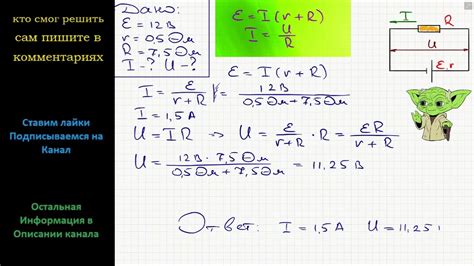 кто смог решить
сам пишите в
комментариях
Ставим лайки
Подписываемся на
Канал
Остальная
Информация в
Описании канала
Дано:
ε = 12 В
r = 0,5 Ом
R = 7,5 Ом
I - ? U - ?
ε = I (r + R)
I = U/R
I R
U
ε, r
ε = I (r + R)
I = ε/(r + R) = 12 В/(0,5 Ом + 7,5 Ом)
I = 1,5 А
U = IR ⇒ U = ε/(r + R) · R = εR/(r + R)
U = 12 В · 7,5 Ом/(0,5 Ом + 7,5 Ом) = 11,25 В
Ответ: I = 1,5 А U = 11,25